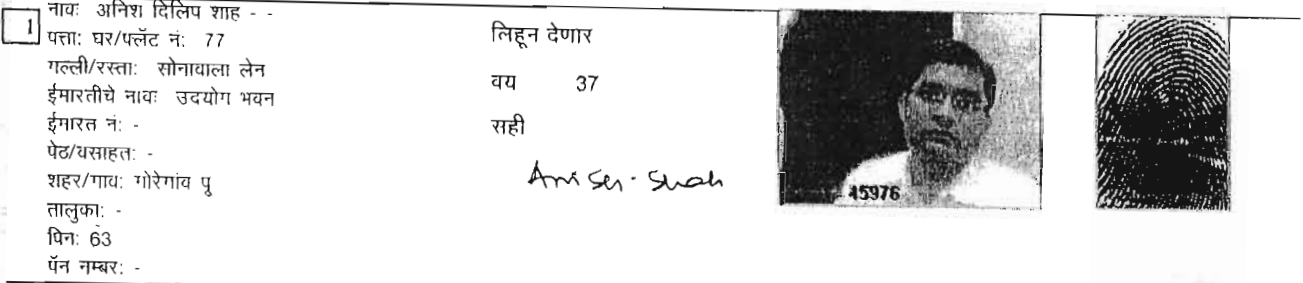 1
नावः अनिश दिलिप शाह - -
पत्ताः घर/फ्लॅट नं: 77
गल्ली/रस्ताः सोनावाला लेन
ईमारतीचे नावः उदयोग भवन
ईमारत नं: -
पेठ/वसाहत: -
शहर/गाव: गोरेगांव पु
तालुका: -
पिन: 63
पॅन नम्बर: -
लिहून देणार
वय 37
सही
Anish Shah
45976